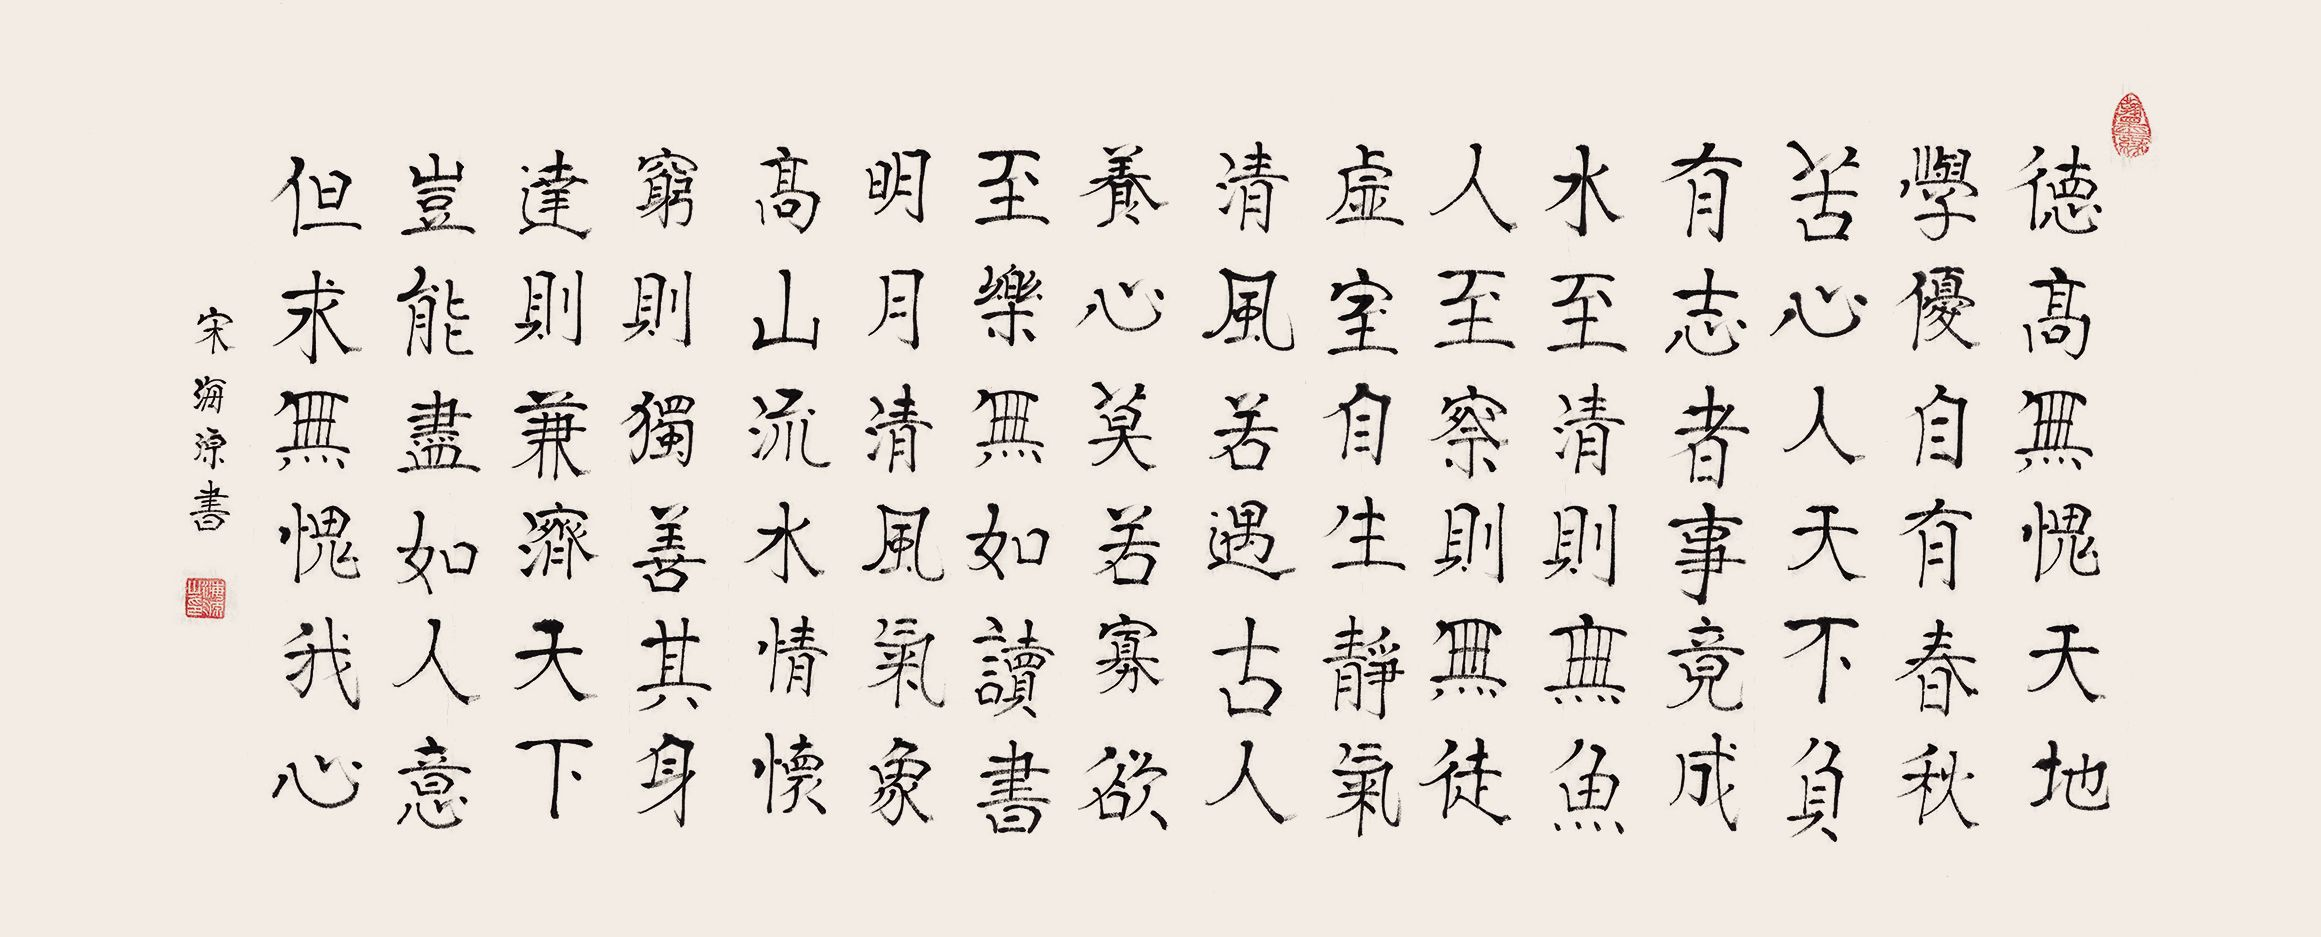 德高無愧天地
學優自有春秋
苦心人天不負
有志者事竟成
水至清則無魚
人至察則無徒
虛室自生靜氣
清風若遇古人
養心莫若寡欲
至樂無如讀書
明月清風氣象
高山流水情懷
窮則獨善其身
達則兼濟天下
豈能盡如人意
但求無愧我心
宋海源書